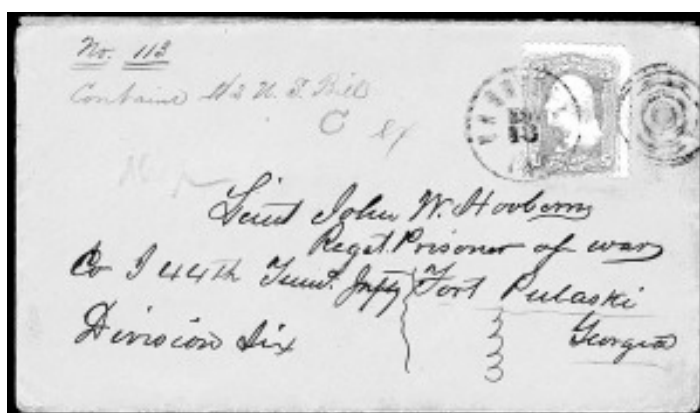 No. 113
Contains $2 U. S. Bill
C
Lieut John W. Hooberry
Regt. Prisoner of war
Co I 44th Tenn. Infty Fort Pulaski
Division Six Georgia